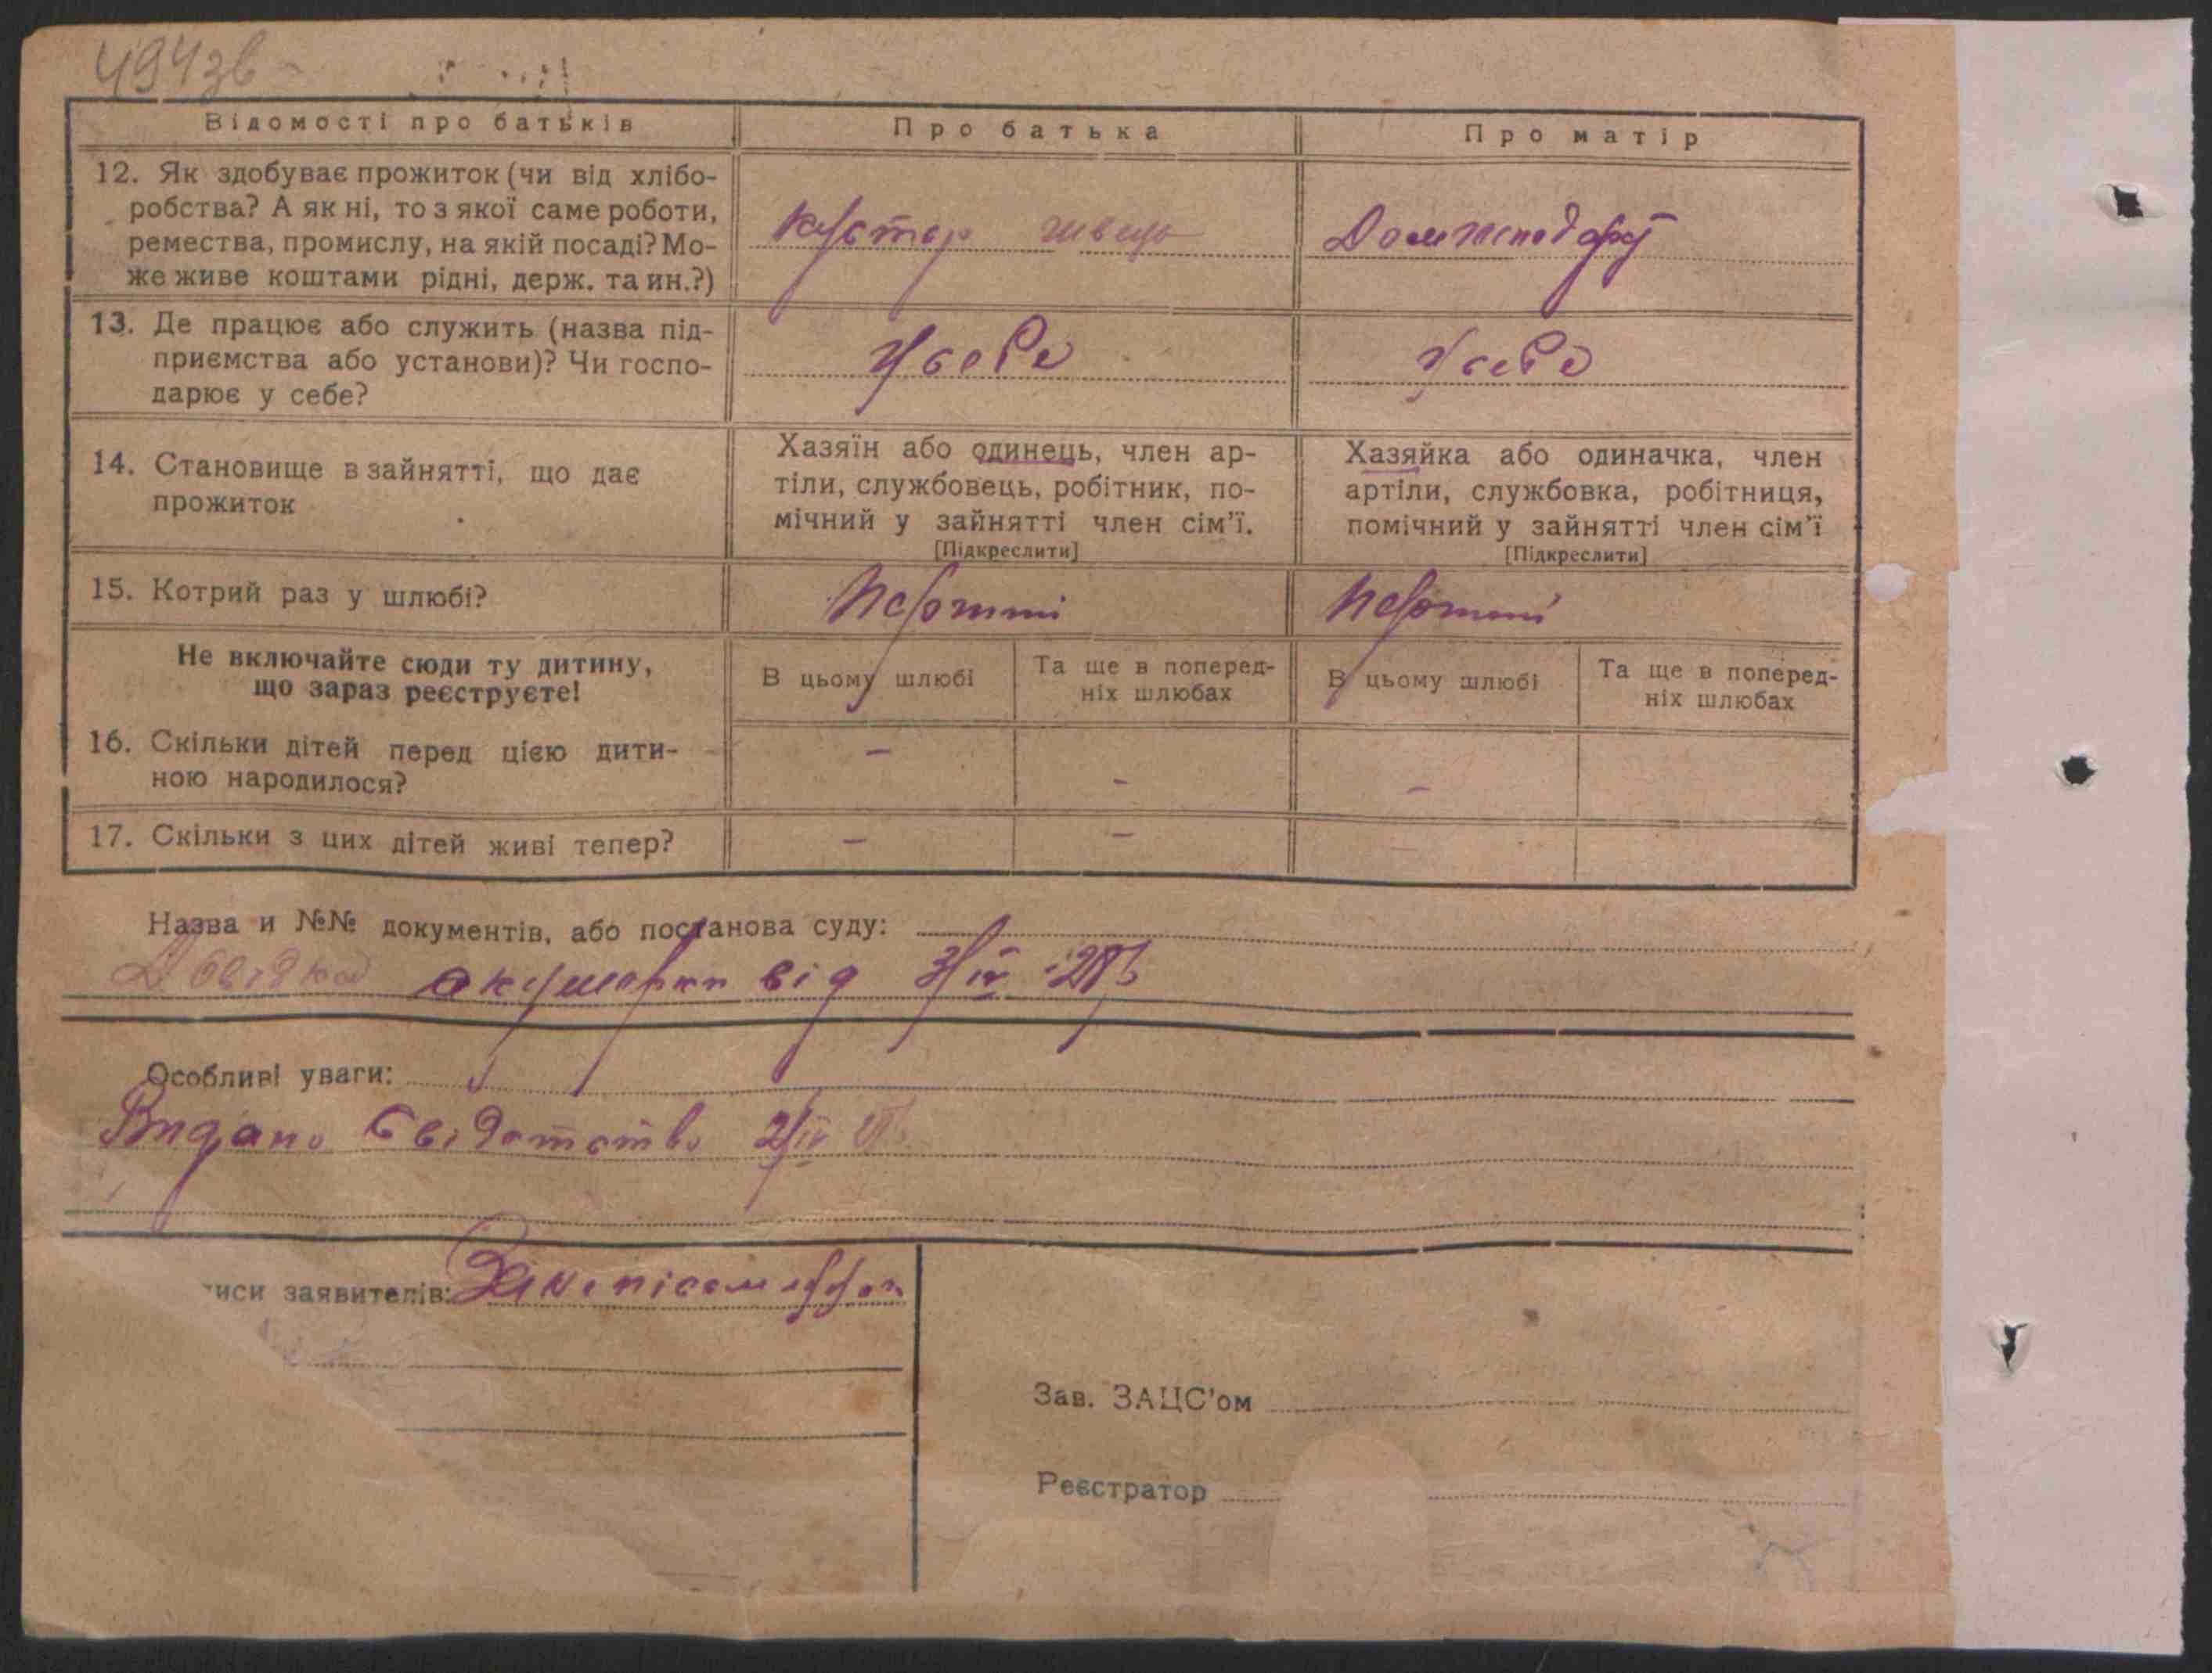 494зв
Відомості про батьків
Про батька
Про матір
12. Як здобуває прожиток (чи від хлібо-
робства? А як ні, то з якої саме роботи,
ремества, промислу, на якій посаді? Мо-
же живе коштами рідні, держ. та ин.?)
Кустар швець
Домгосподарь
13. Де працює або служить (назва під-
приємства або установи)? Чи госпо-
дарює у себе?
У себе
У себе
14. Становище в зайнятті, що дає
прожиток
Хазяїн або одинець, член ар-
тіли, службовець, робітник, по-
мічний у зайнятті член сім'ї.
[Підкреслити]
Хазяйка або одиначка, член
артіли, службовка, робітниця,
помічний у зайнятті член сім'ї
[Підкреслити]
15. Котрий раз у шлюбі?
Перший
Перший
Не включайте сюди ту дитину,
що зараз реєструєте!
В цьому шлюбі
Та ще в поперед-
ніх шлюбах
В цьому шлюбі
Та ще в поперед-
ніх шлюбах
16. Скільки дітей перед цією дити-
ною народилося?
–
–
–
17. Скільки з цих дітей живі тепер?
–
–
Назва и №№ документів, або постанова суду:
Довідка акушерки від 3/IV 28р
Особливі уваги:
Видано Свідотство
иси заявителів:
Зав. ЗАЦС'ом
Реєстратор